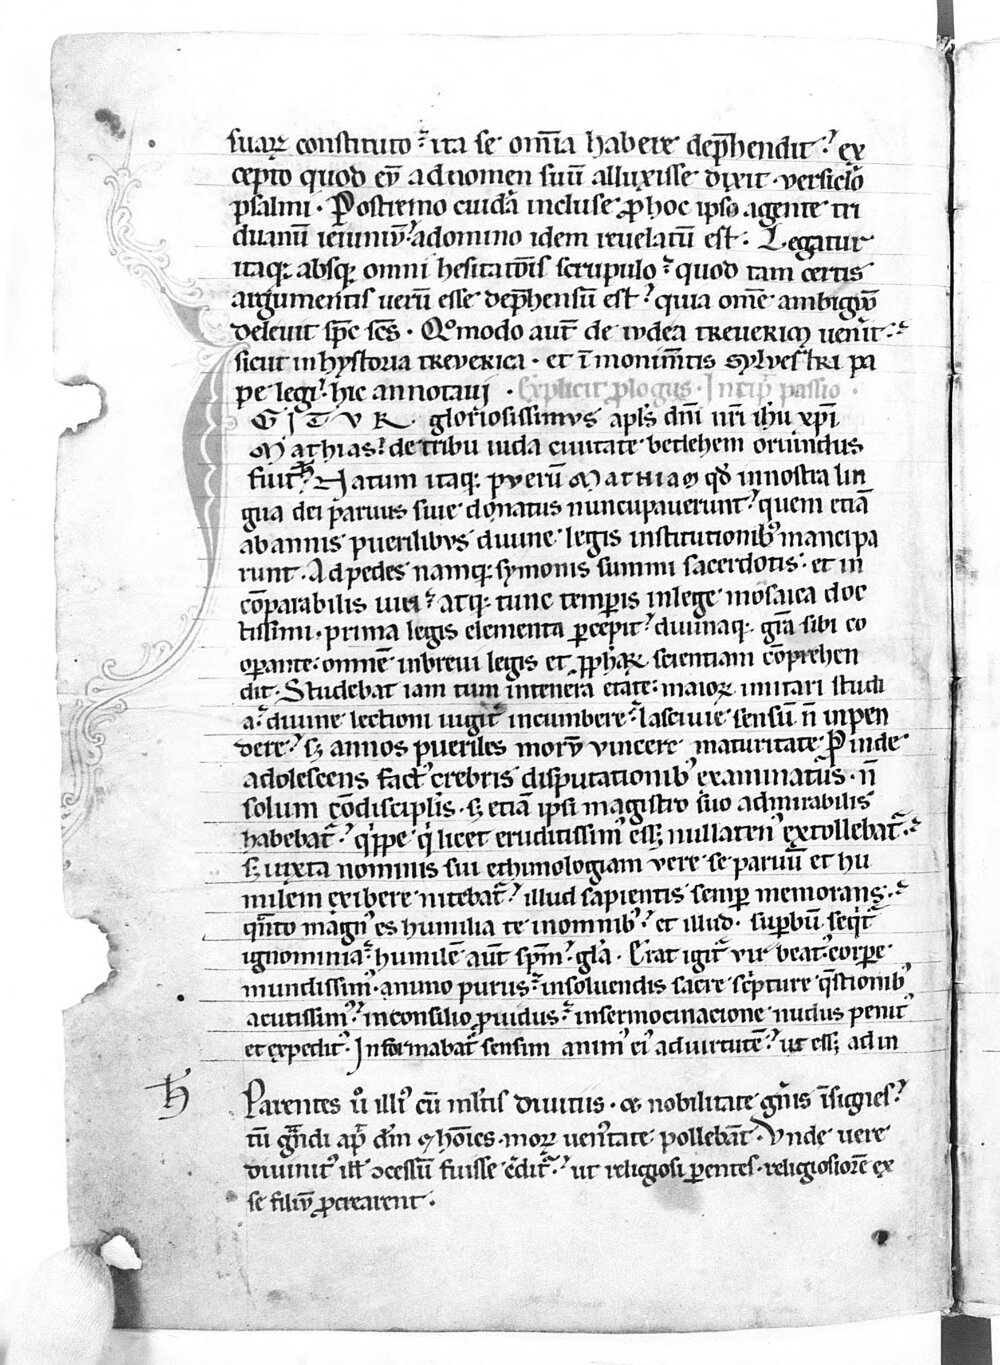 suaꝝ constituto ita se om̄ia habere dep̄hendit ex
cepto quod eū ad nomen suū alluxisse dixit versiclo
psalmi. Postremo cuidā incluse ꝓ hoc ipso agente tri
duanū ieiuniū a domino idem reuelatū est. Legatur
itaq; absq; omni hesitatōis scrupulo quod tam certis
argumentis uerū esse dep̄hensū est quia om̄e ambiguū
deleuit sp̄c sc̄s. Qͦmodo aut̄ de iudea treuerim uen̄it
sicut in hystoria treverica. et ī monim̄tis sylvestri pa
pe legit̉ hic annotavi. Explicit ꝓlogus. Incip̄ passio.
GITVR. gloriosissimvs apl̄s dn̄i nr̄i ih̄u xp̄i
Mathias de tribu iuda ciuitate betlehem oriundus
fuit. Natum itaq; pverū Mathiam qd̄ in nostra lin
gua dei paruus siue donatus nuncupauerunt quem etiā
ab annis puerilibvs diuine legis institutionib; mancipa
runt. Ad pedes namq; symonis summi sacerdotis et in
cōparabilis iuri atq; tunc temꝑis in lege mosaica doc
tissimi. prima legis elementa ꝑcepit diuinaq; grā sibi co
oꝑante omnē in breui legis et ꝓphaꝝ scientiam cōprehen
dit. Studebat iam tum in tenera etate maioꝝ imitari studi
a diuine lectioni iugit̉ incumbere lasciuie sensū n̄ inpen
dere sꝫ annos pueriles morū vincere maturitate. Proinde
adolescens fact̉ crebris disputationib; examinatus n̄
solum cōdiscipl̄is. sꝫ etiā ipsi magistro suo admirabilis
habebat̉ qͥppe qͥ licet eruditissim̉ eēt nullaten̉ extollebat̉
sꝫ iuxta nominis sui ethimologiam vere se paruū et hu
milem exibere nitebat̉ illud sapientis semꝑ memorans
qn̄to magn̉ es humilia te in omnib; et illud. suꝑbū seqͥt̉
ignominia humilē aūt spm̄ glā. Erat igit̉ vir beat̉ corpe
mundissim̉ animo purus in soluendis sacre scͥpture qͦstionib;
acutissim̉ in consilio ꝓuidus in sermocinacione nudus penit̉
et expedit̉. Informabat̉ sensim anim̉ eỉ ad uirtutē ut eēt ad in
h̄
Parentes ū illỉ cū ml̄tis diuitiis. & nobilitate gn̄is īsignes
tū gͣndi ap̄ dm̄ ꝯ hōies moꝝ uen̄tate pollebāt. Vnde uere
diuinit̉ ill̄ ↄcessū fuisse c̄dit̉ ut religiosi ꝑentes religiosiorē ex
se filiū ꝓcrearent.